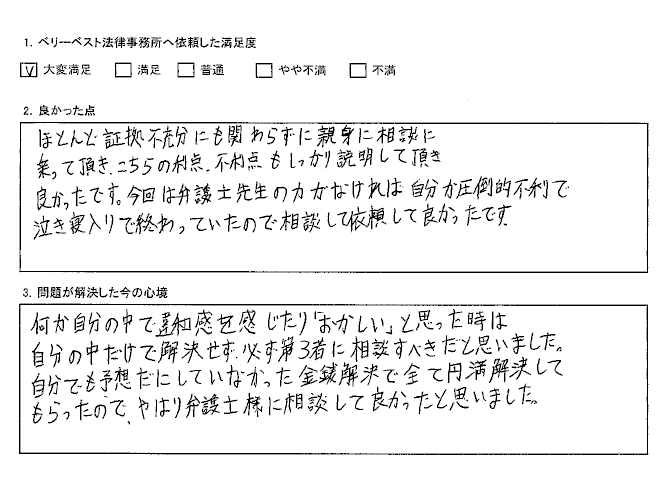 1. ベリーベスト法律事務所へ依頼した満足度
☑ 大変満足 □ 満足 □ 普通 □ やや不満 □ 不満
2. 良かった点
ほとんど証拠不充分にも関わらずに親身に相談に
乗って頂き、こちらの利点、不利点もしっかり説明して頂き
良かったです。今回は弁護士先生の力がなければ自分が圧倒的不利で
泣き寝入りで終わっていたので相談して依頼して良かったです。
3. 問題が解決した今の心境
何か自分の中で違和感を感じたり「おかしい」と思った時は
自分の中だけで解決せず、必ず第3者に相談すべきだと思いました。
自分でも予想だにしていなかった金銭解決で全て円満解決して
もらったので、やはり弁護士様に相談して良かったと思いました。